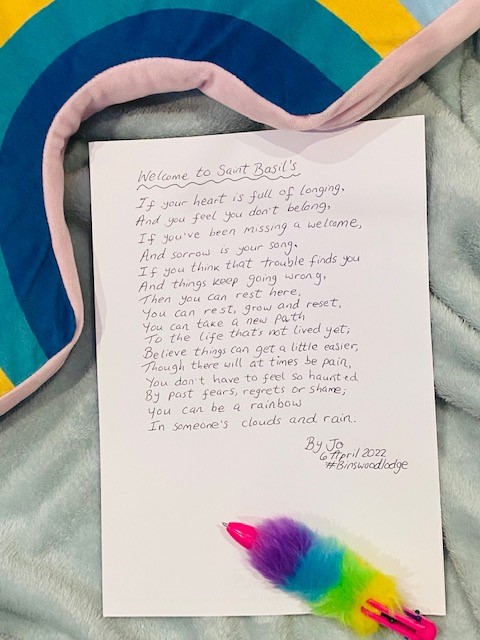 Welcome to Saint Basil's
If your heart is full of longing,
And you feel you don't belong,
If you've been missing a welcome,
And sorrow is your song.
If you think that trouble finds you
And things keep going wrong,
Then you can rest here,
You can rest, grow and reset,
You can take a new path
To the life that's not lived yet;
Believe things can get a little easier,
Though there will at times be pain,
You don't have to feel so haunted
By past fears, regrets or shame;
You can be a rainbow
In someone's clouds and rain.
By Jo
6 April 2022
#Binswoodlodge